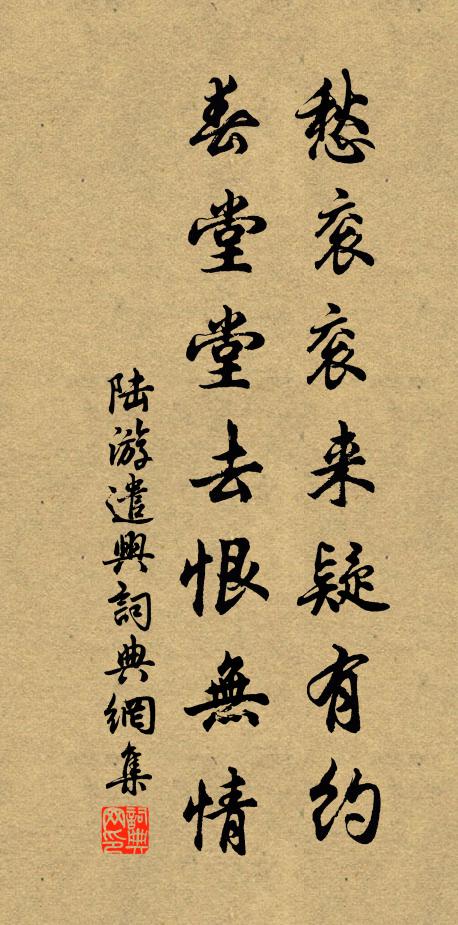 愁衮衮来疑有约
春堂堂去恨無情
陆游遣興詞典網集
詞典网印